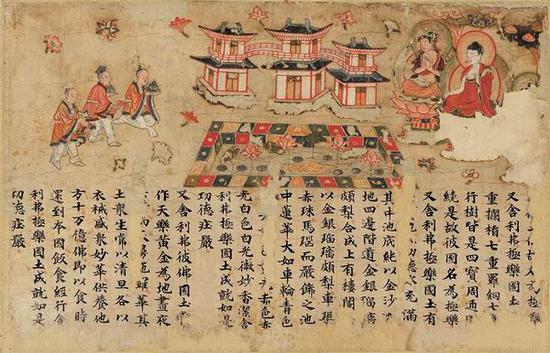 極樂
又舍利弗極樂國土
重欄楯七重羅網七
行樹皆是四寶周迊
繞是故彼國名為極樂
又舍利弗極樂國土有
功德 充滿
其中池底純以金沙
地四邊階道金銀瑠璃
頗梨合成上有樓閣
以金銀瑠璃頗梨車璖
赤珠馬瑙而嚴飾之池
中蓮華大如車輪青色
赤色赤
光白色白光微妙香潔舍
利弗極樂國土成就如是
功德莊嚴
又舍利弗彼佛國土
作天樂黃金為地晝夜
而 華其
土眾生常以清旦各以
衣裓盛眾妙華供養他
方十万億佛即以食時
還到本國飯食經行舍
利弗極樂國土成就如是
功德莊嚴